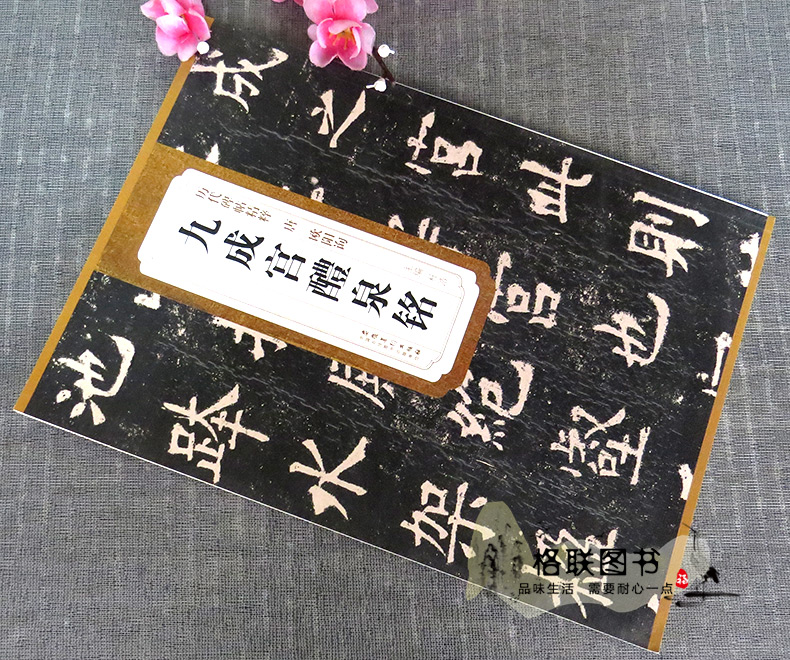 成之宫此则
宫也
绝壑
池跨水架楹
历代碑帖精粹 唐 欧阳询
九成宫醴泉铭
格联图书
品味生活 需要耐心一点